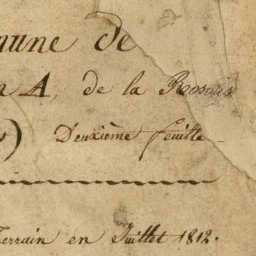 mune de
n A, de la Rosais
) Deuxième feuille
Terrain en Juillet 1812.